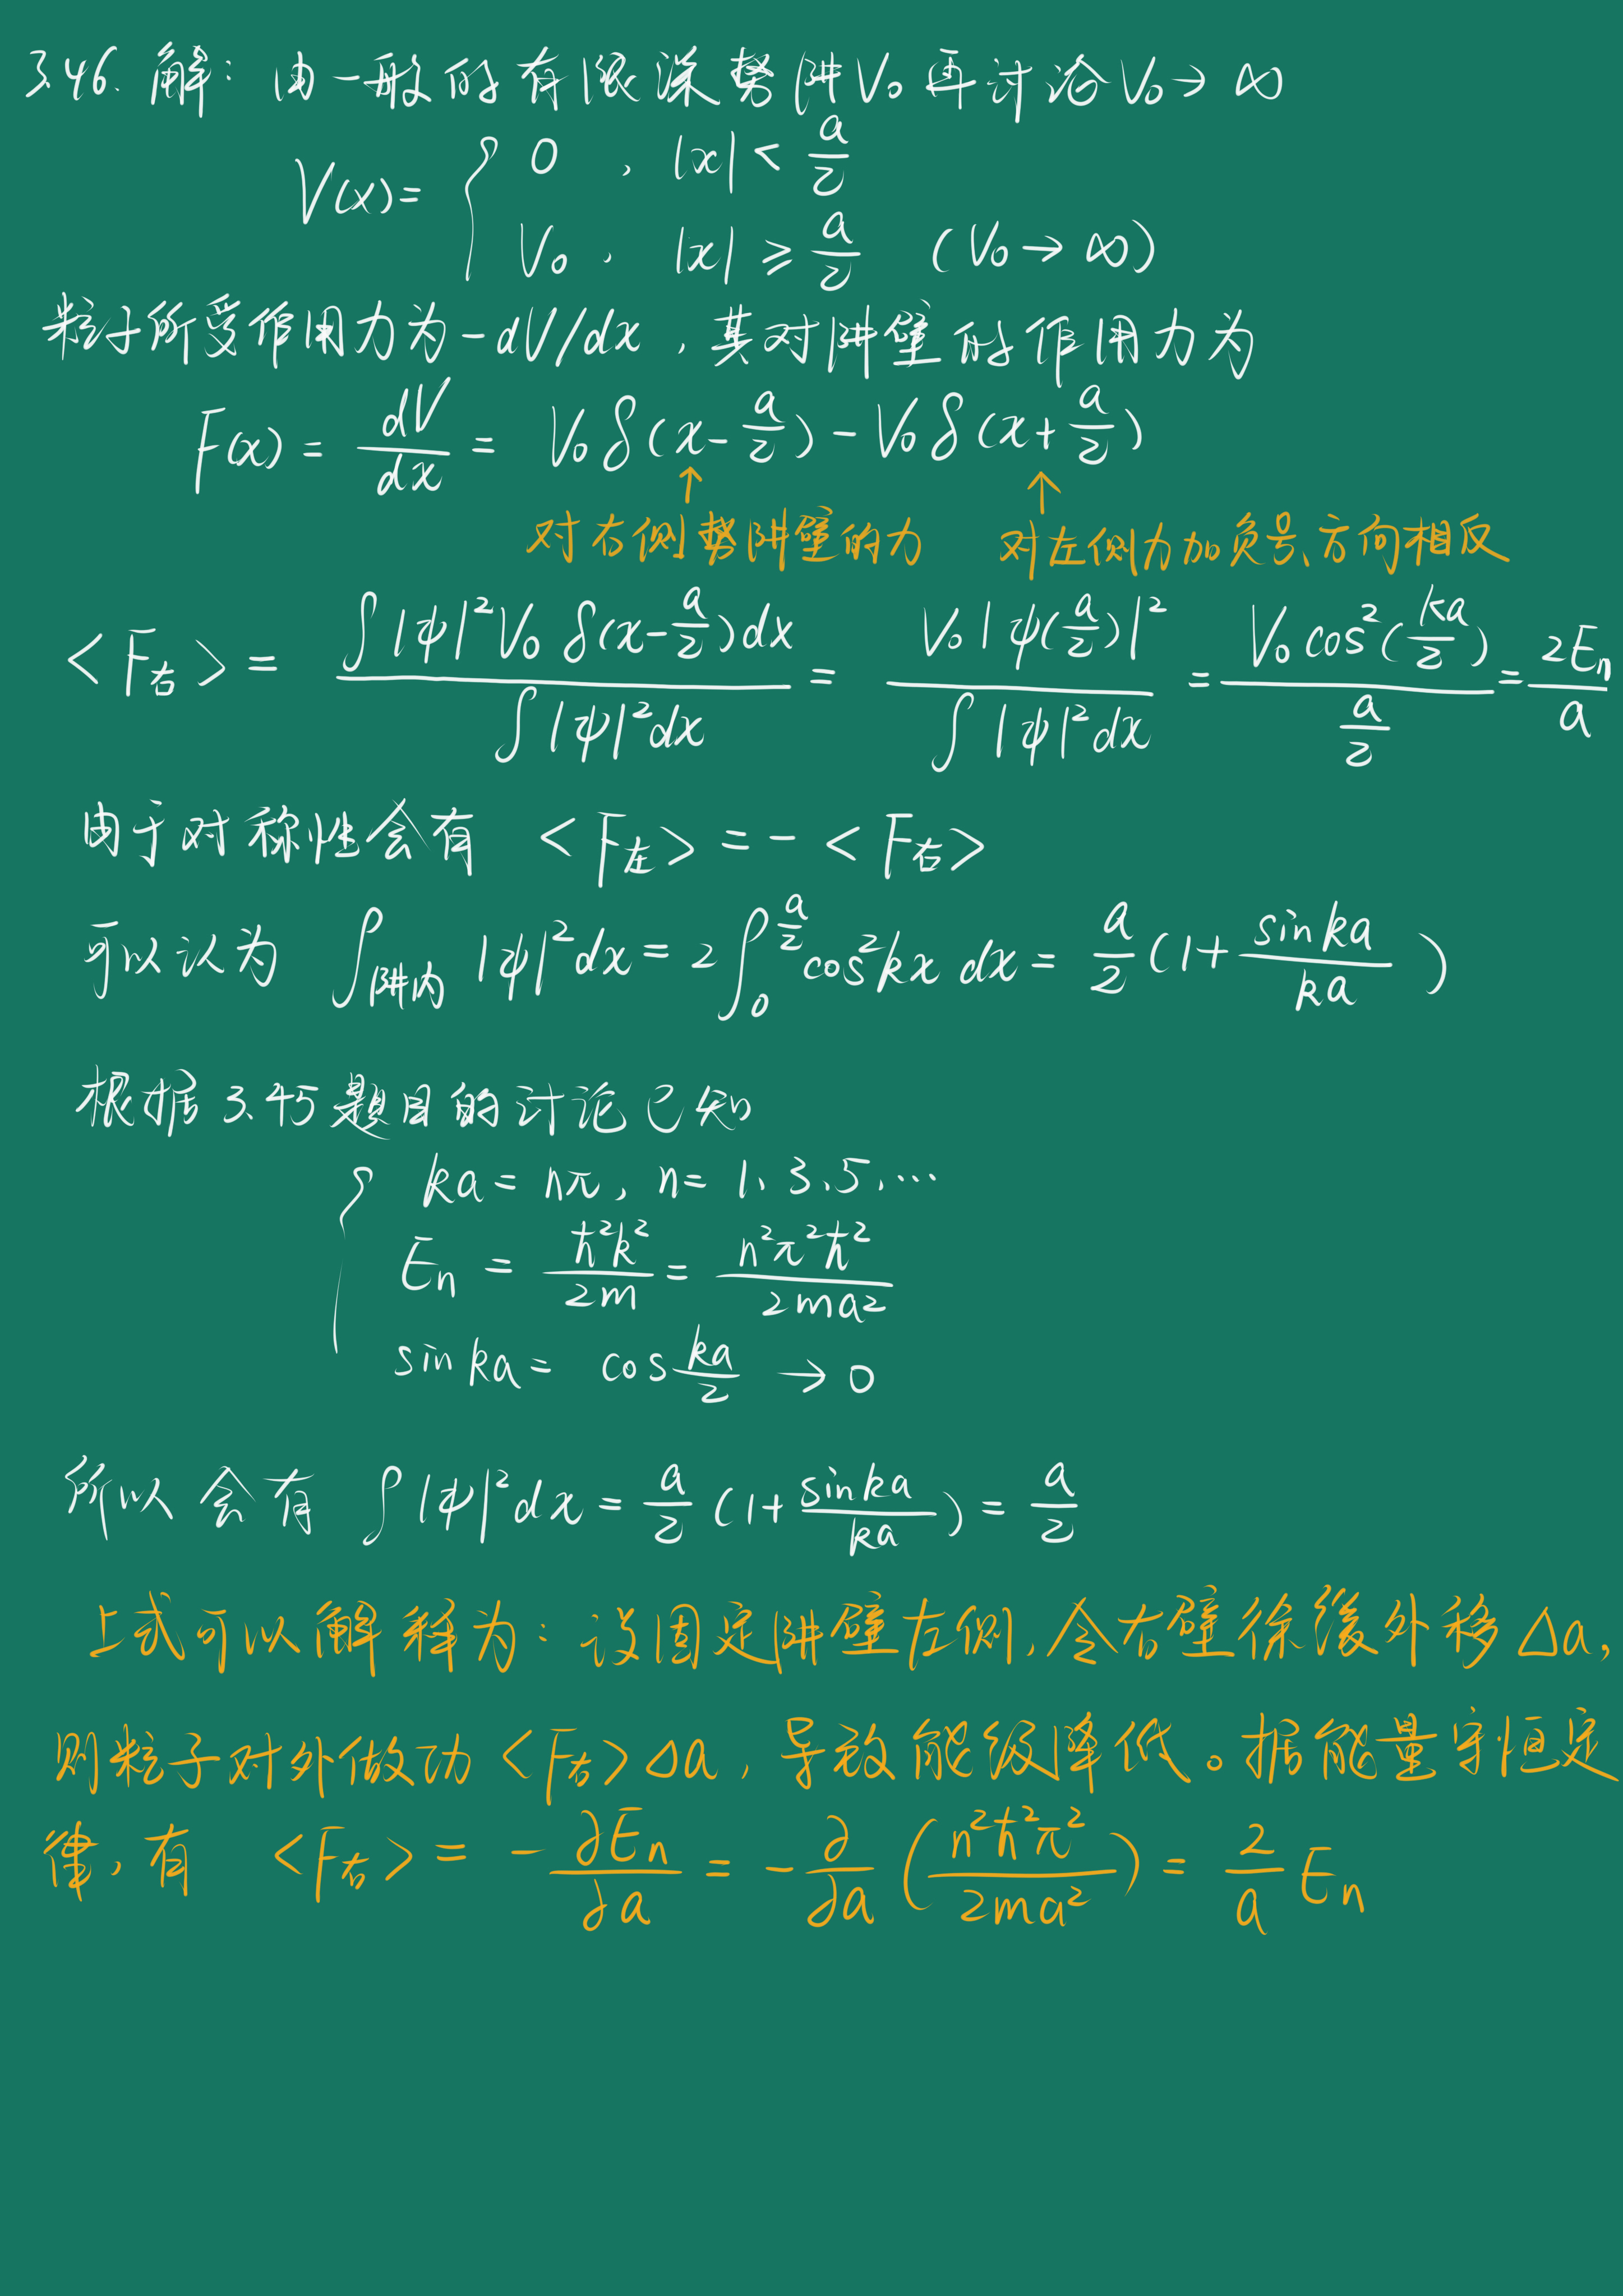 3.46. 解：由一般的有限深势阱V₀再讨论V₀→∞
V(x)= { 0 , |x| < a/2
V₀ , |x| ≥ a/2 (V₀→∞)
粒子所受作用力为-dV/dx，其对阱壁的作用力为
F(x) = dV/dx = V₀δ(x-a/2) - V₀δ(x+a/2)
↑ ↑
对右侧势阱壁的力 对左侧力加负号、方向相反
<F右> = ∫|ψ|²V₀δ(x-a/2)dx / ∫|ψ|²dx = V₀|ψ(a/2)|² / ∫|ψ|²dx = V₀cos²(ka/2) / (a/2) = 2Eₙ/a
由于对称性会有 <F左> = - <F右>
可以认为 ∫阱内 |ψ|²dx = 2∫₀^(a/2) cos²kx dx = a/2 (1+ sinka/ka )
根据3.45题目的讨论已知
{ ka = nπ, n = 1、3、5、…
Eₙ = ħ²k²/2m = n²π²ħ²/2ma²
sinka = cos ka/2 → 0
所以会有 ∫|ψ|²dx = a/2 (1+ sinka/ka) = a/2
上式可以解释为：设固定阱壁左侧，令右壁徐缓外移Δa，
则粒子对外做功<F右>Δa，导致能级降低。据能量守恒定
律，有 <F右> = -∂Eₙ/∂a = -∂/∂a (n²ħ²π²/2ma²) = 2/a Eₙ